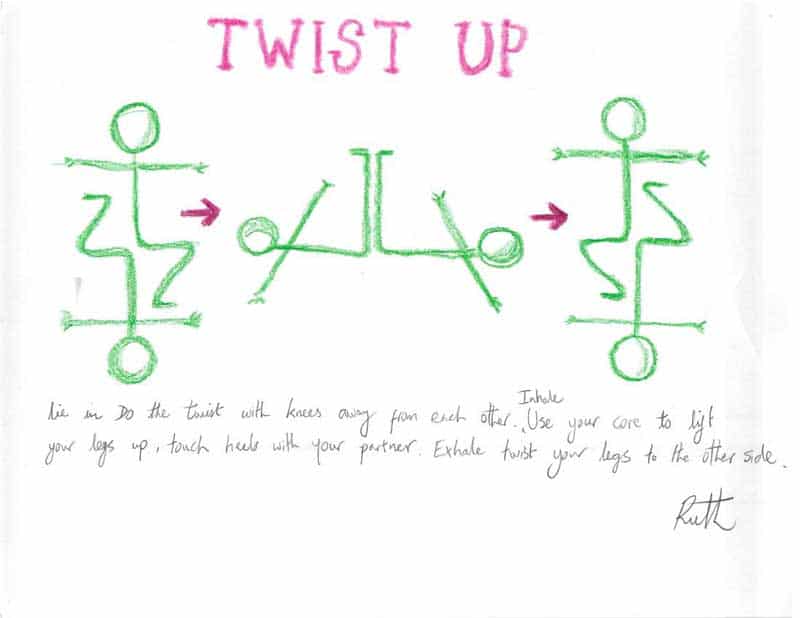 TWIST UP
lie in Do the twist with knees away from each other. Inhale Use your core to lift
your legs up, touch heels with your partner. Exhale twist your legs to the other side.
Ruth